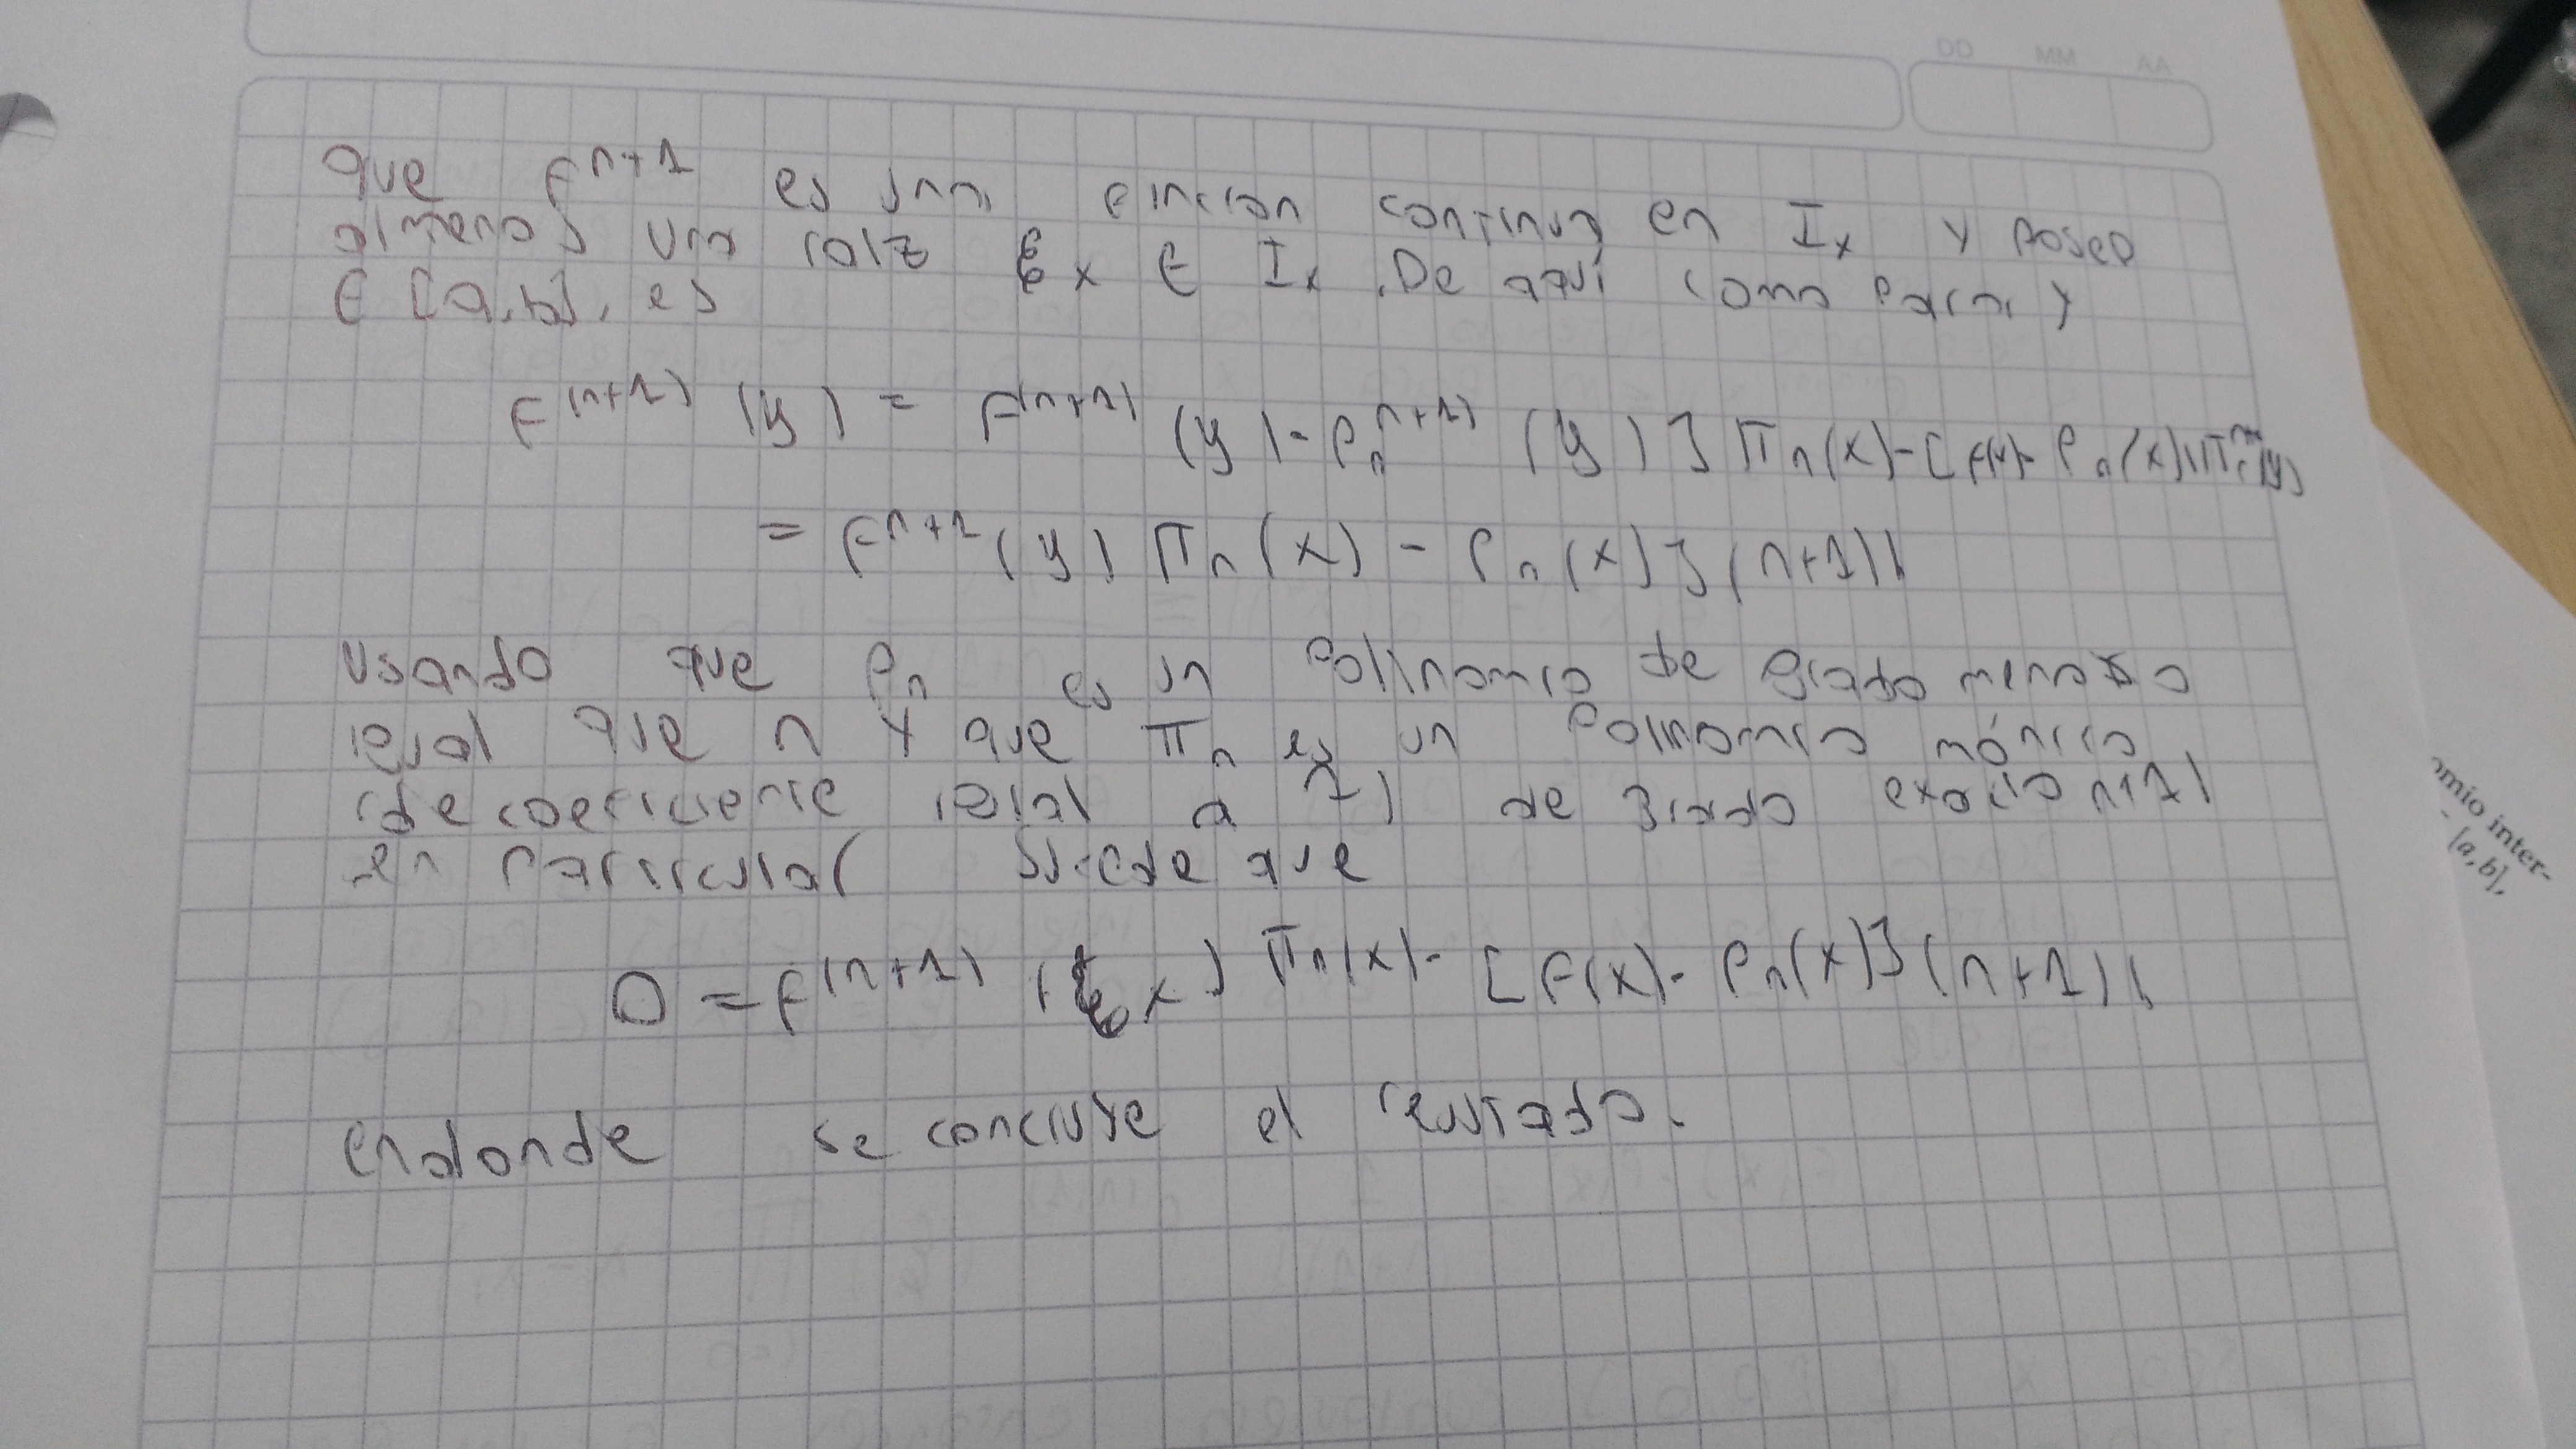 DD MM AA
que F^{n+1} es una función continua en I_x y posee
almenos una raíz ξ_x ∈ I_x. De aquí como para y
∈ [a,b], es
F^{(n+1)} (y) = F^{(n+1)} (y) - P_n^{n+1)} (y)] π_n(x) - [F(x) - P_n(x)] π_n^{(n+1)}(y)
= F^{n+1}(y) π_n(x) - P_n(x)](n+1)!
usando que P_n es un Polinomio de grado menor o
igual que n y que π_n es un Polinomio mónico
(de coeficiente igual a 1) de grado exacto n+1)
en particular sucede que
0 = F^{(n+1)} (ξ_x) π_n(x) - [F(x) - P_n(x)](n+1)!
endonde se concluye el resultado.
omio inter-
[a, b],